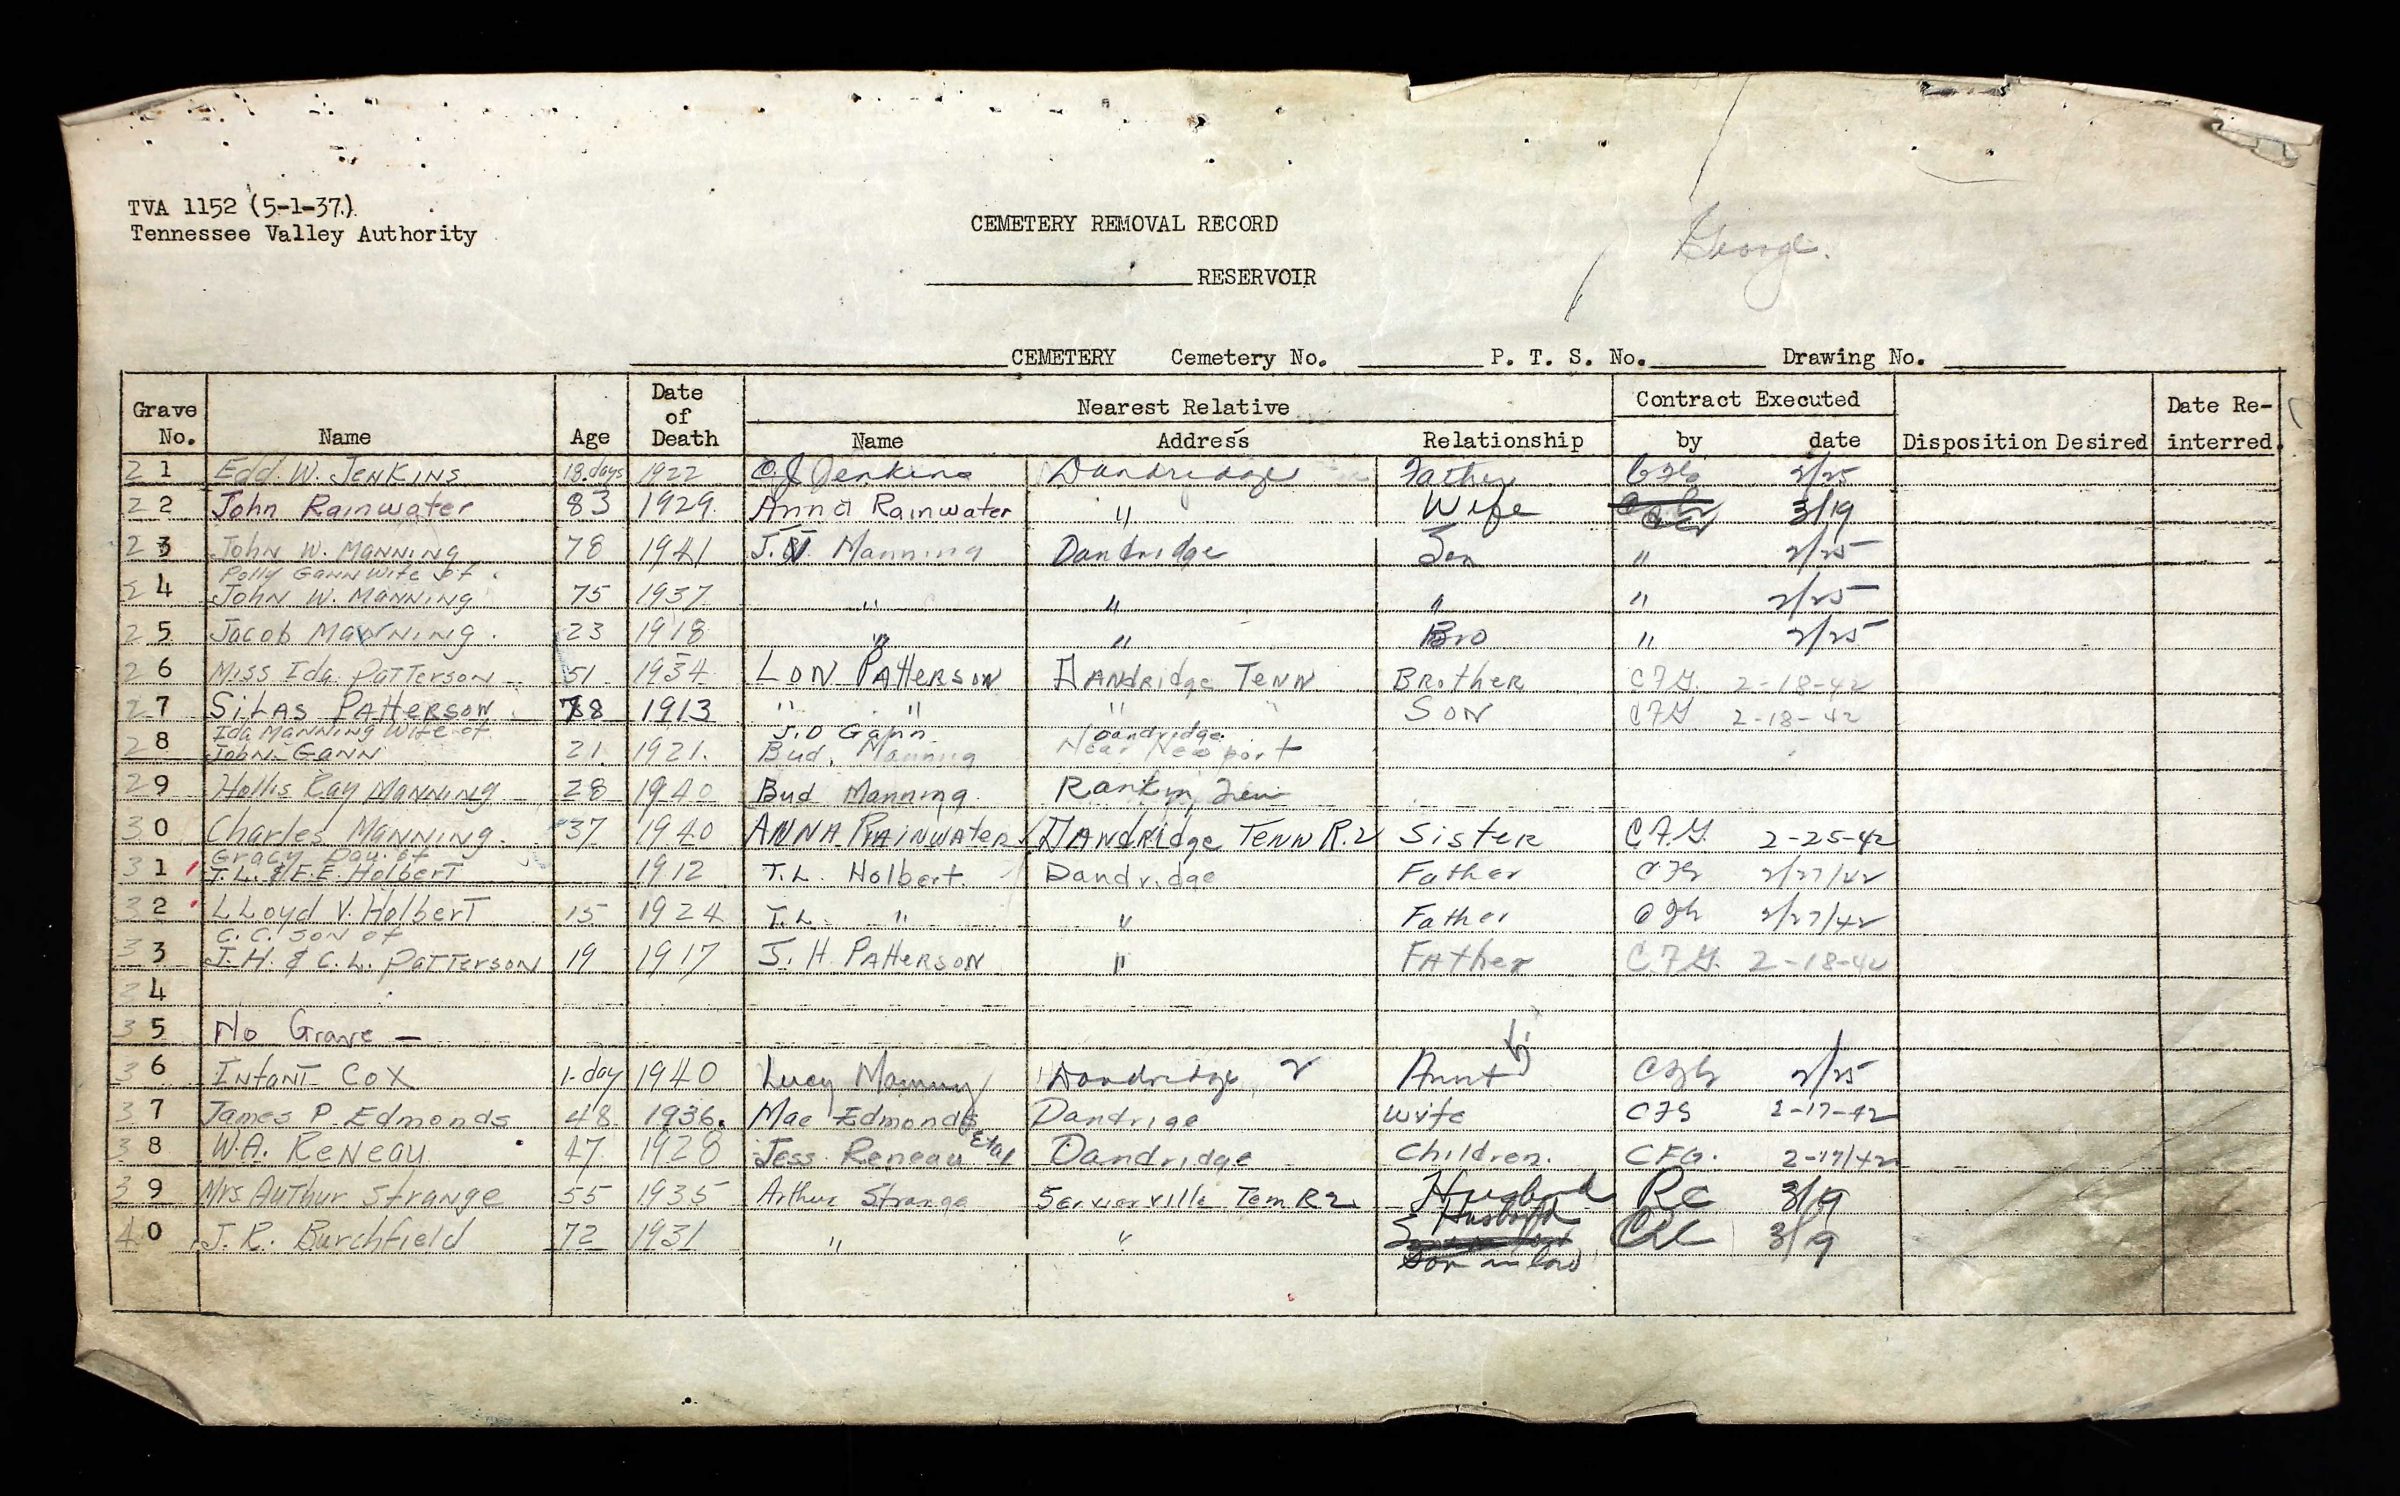 TVA 1152 (5-1-37.)
Tennessee Valley Authority
CEMETERY REMOVAL RECORD
George.
RESERVOIR
CEMETERY Cemetery No. P. T. S. No. Drawing No.
Grave No. Name Age Date of Death Nearest Relative Name Address Relationship Contract Executed by date Disposition Desired Date Re-interred.
21 Edd. W. JENKINS 18.days 1922 Jenkins Dandridge Father 2/25
22 John Rainwater 83 1929. Anna Rainwater " Wife 3/19
23 John W. MANNING 78 1941 Manning Dandridge Son " 2/25
Polly GANN Wife of
24 John W. MANNING 75 1937 " " " " 2/25
25 Jacob MANNING. 23 1918 " " Bro " 2/25
26 Miss Ida PATTERSON 51 1934 LON PATTERSON DANdRidge TENN BRotHER C.F.G. 2-18-42
27 SiLAS PATTERSON 78 1913 " " " " SON CFG 2-18-42
Ida MANNING Wife of J.D Gann Dandridge
28 John GANN 21. 1921. Bud. Manning Near Newport
29 Hollis Ray MANNING 28 1940 Bud Manning Rankin, Ten
30 Charles MANNING. 37 1940 ANNA RAINWATER DANdRidge TENN R.2 SistER C.F.G. 2-25-42
Gracy Dau. of
31 T.L. & E.E. Holbert 1912 T.L. Holbert. Dandridge Father CFG 2/27/42
32 LLoyd V. Holbert 15 1924 T.L. " " Father CFG 2/27/42
C. C. son of
33 J.H. & C.L. PATTERSON 19 1917 J. H. PATTERSON " FAther C.F.G. 2-18-42
34
35 No Grave —
36 INfANT COX 1-day 1940 Lucy Manning Dandridge, 2 Aunt CFG 2/25
37 James P. Edmonds 48 1936. Mae Edmonds Dandrige wife CFG 2-17-42
38 W.A. ReNeau 47 1928 Jess Reneau Etal Dandridge Children. CFG. 2-17/42
39 Mrs Authur Strange 55 1935 Arthur Strange Servierville Tenn R2. Husband RC 3/19
Husband
40 J. R. Burchfield 72 1931 " " 3/19
Son in law